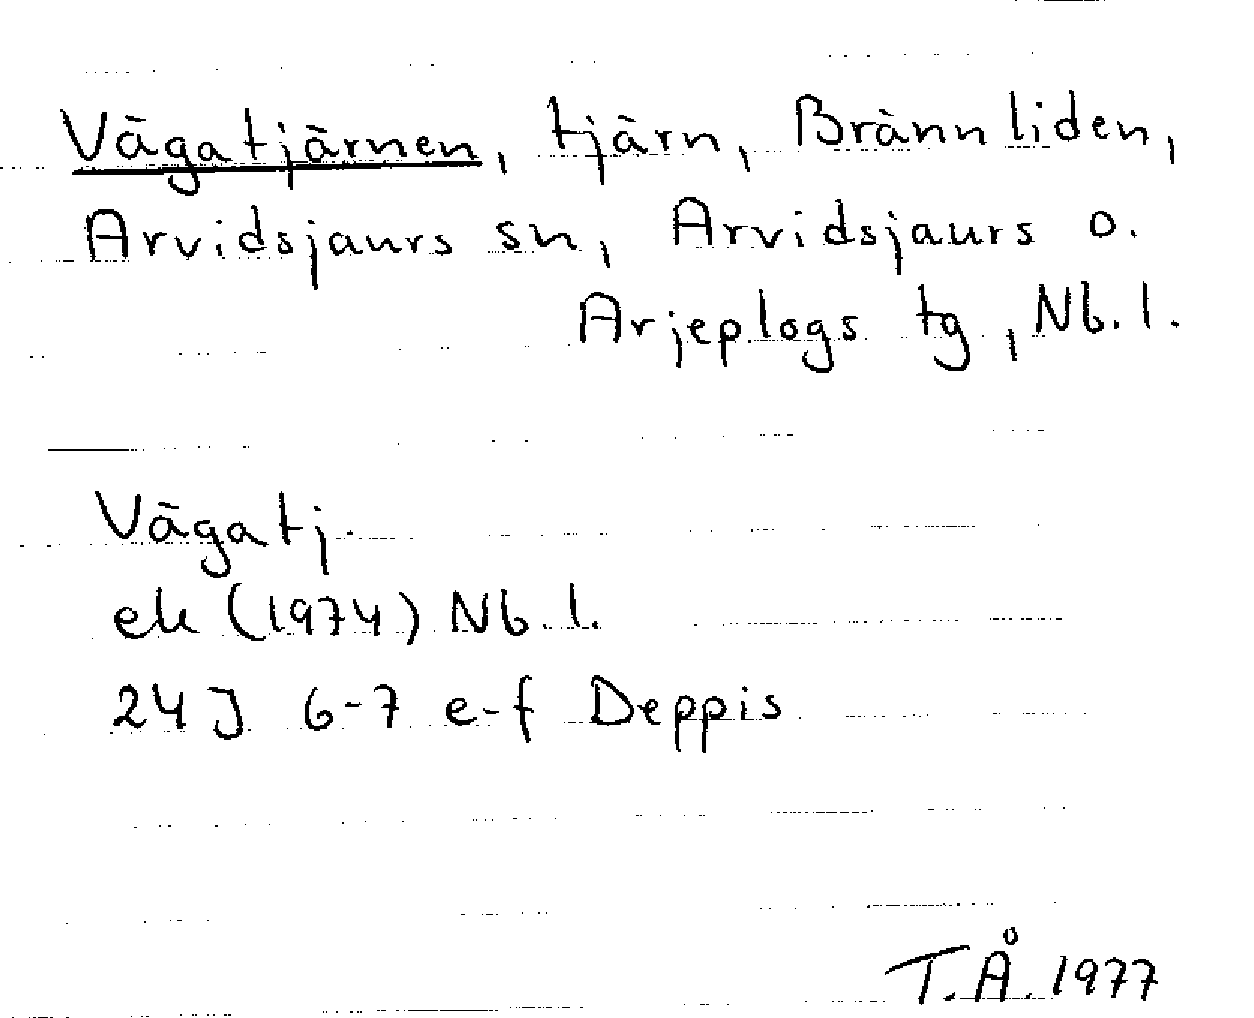 Vägatjärnen, tjärn, Brännliden,
Arvidsjaurs sn, Arvidsjaurs o.
Arjeplogs tg, Nb. l.
Vägatj.
ek (1974) Nb. l.
24J 6-7 e-f Deppis
T.Å. 1977